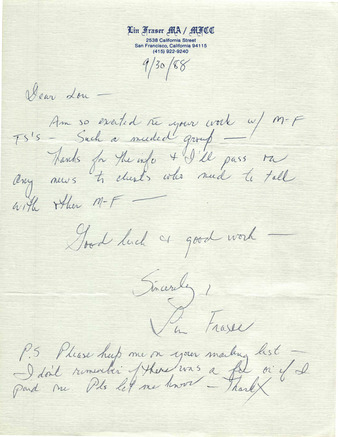 Lin Fraser MA / MFCC
2538 California Street
San Francisco, California 94115
(415) 922-9240
9/30/88
Dear Lou —
Am so excited re your work w/ M-F
TS's — Such a needed group —
Thanks for the info & I'll pass on
any news to clients who need to talk
with other M-F —
Good luck & good work —
Sincerely,
Lin Fraser
P.S Please keep me on your mailing list —
I don't remember if there was a fee or if I
paid one Pls let me know — Thanx